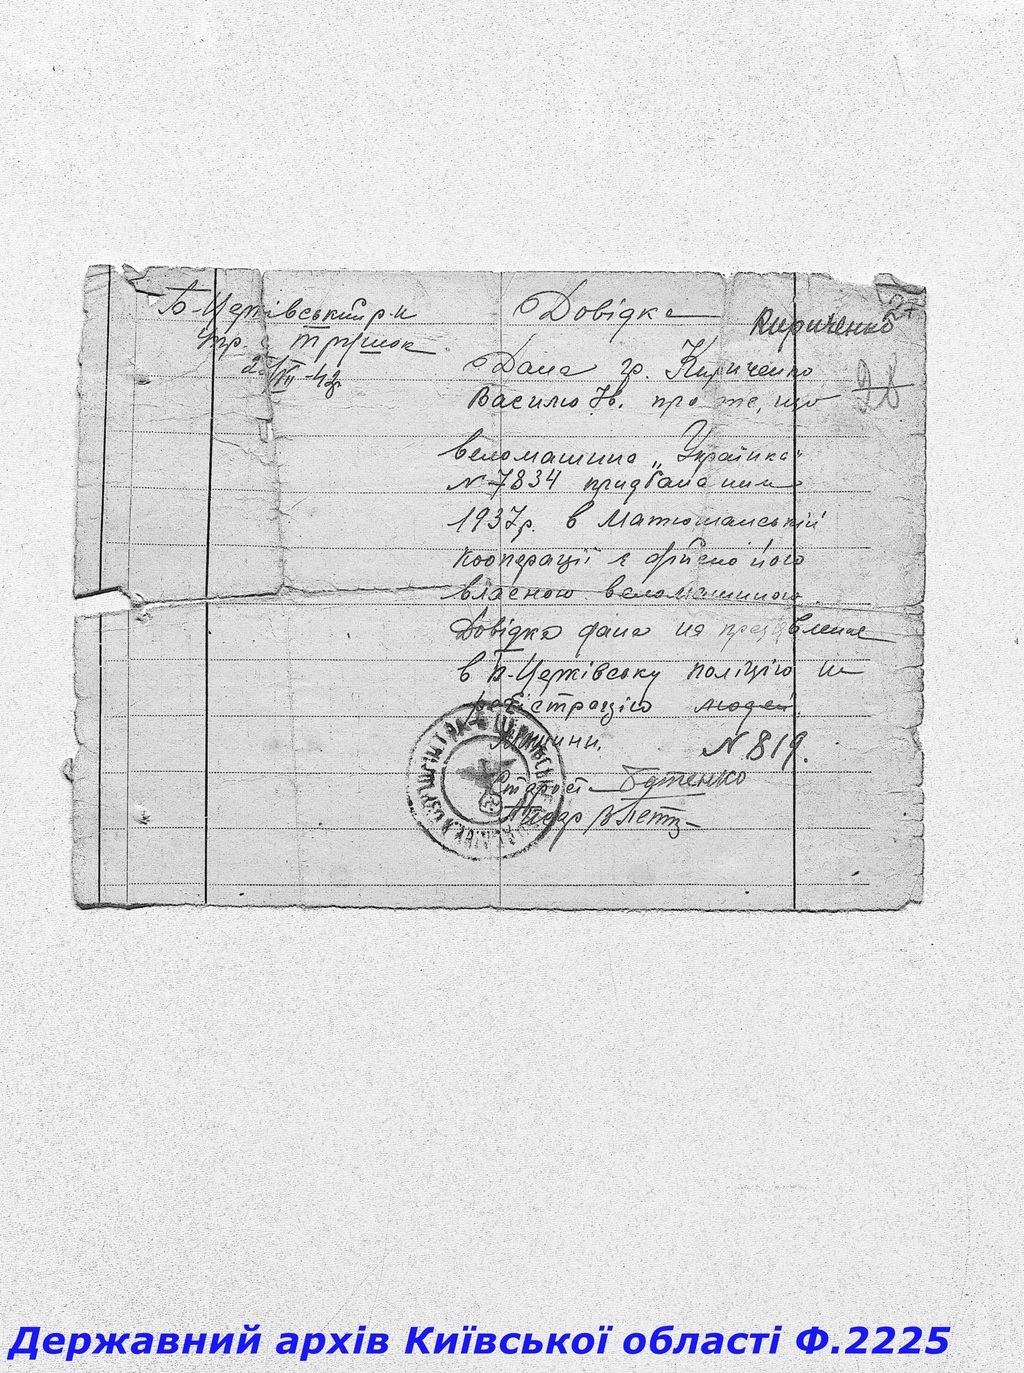 Б-Церківський р-н
упр. с. Трушок
VII-42р.
Довідка
Кириченко
27
98
Дана гр. Кириченко
Василю Ів. про те, що
веломашина „Українка"
№ 7834 придбана ним
1937р. в Матюшанській
кооперації є дійсно його
власною веломашиною.
Довідка дана на пред'явлення
в Б-Церківську поліцію на
реєстрацію людей.
Машини.
№ 819.
Староста Бутенко